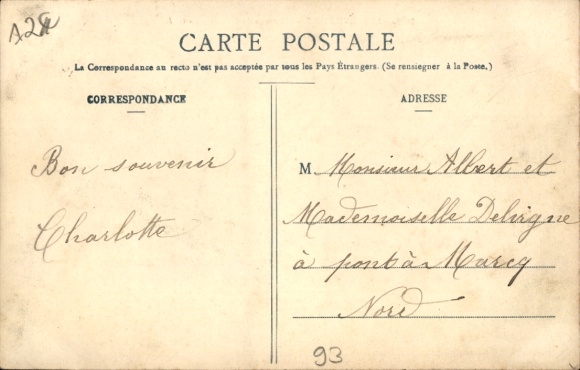 A24
CARTE POSTALE
La Correspondance au recto n'est pas acceptée par tous les Pays Étrangers. (Se renseigner à la Poste.)
CORRESPONDANCE
Bon souvenir
Charlotte
ADRESSE
M Monsieur Albert et
Mademoiselle Delvigne
à pont à Marcq
Nord
93